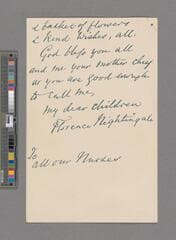 & basket of flowers
& kind wishes, all.
God bless you all
and me your mother chief
as you are good enough
to call me,
my dear children
Florence Nightingale
To
all our Nurses